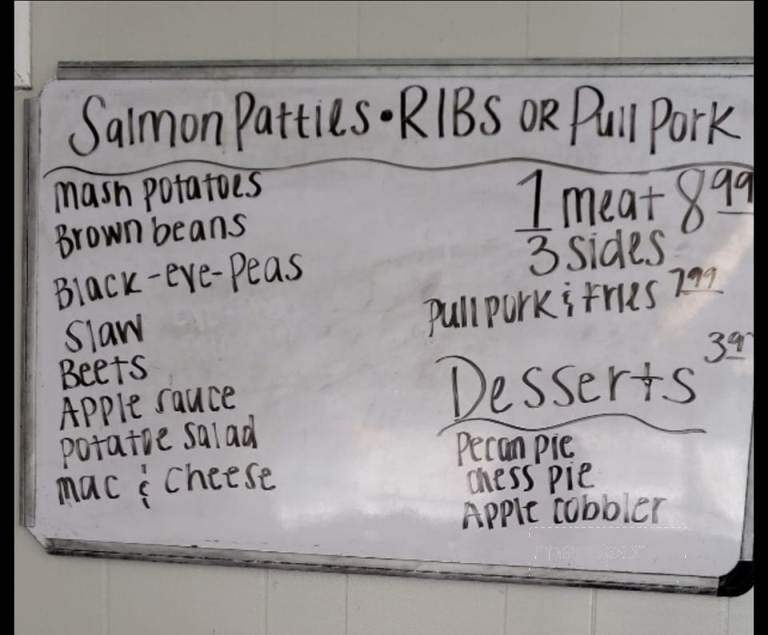 Salmon Patties • RIBS OR Pull Pork
mash potatoes
Brown beans
Black-eye-Peas
Slaw
Beets
Apple sauce
potatoe salad
mac & cheese
1 meat 8.99
3 sides
Pull pork & fries 7.99
Desserts 3.9
Pecan pie
chess pie
Apple cobbler